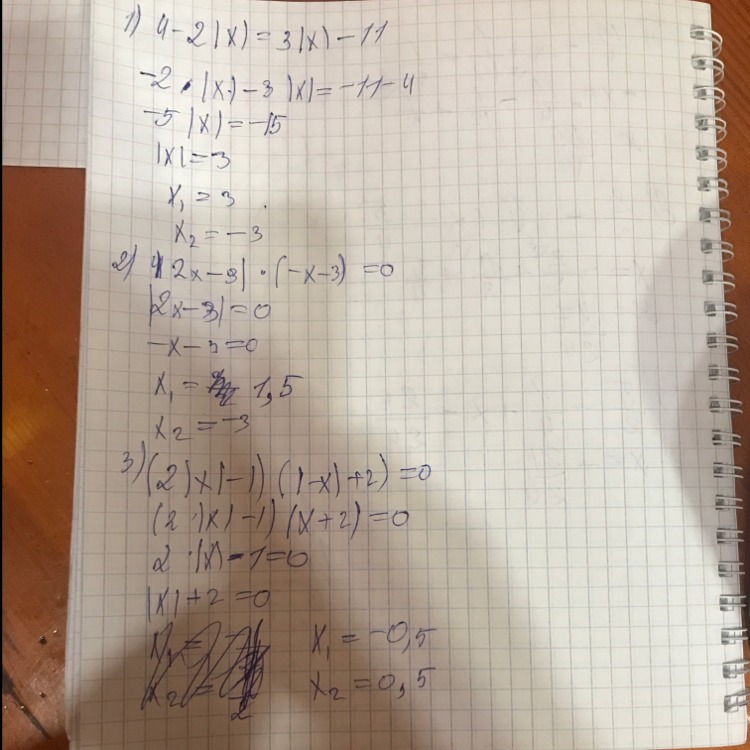 1) 4-2|x|=3|x|-11
-2·|x|-3|x|=-11-4
-5|x|=-15
|x|=3
x₁=3
x₂=-3
2) |2x-3|·(-x-3)=0
|2x-3|=0
-x-3=0
x₁= 1,5
x₂=-3
3) (2|x|-1)(|-x|+2)=0
(2·|x|-1)(x+2)=0
2·|x|-1=0
|x|+2=0
x₁=-0,5
x₂=0,5